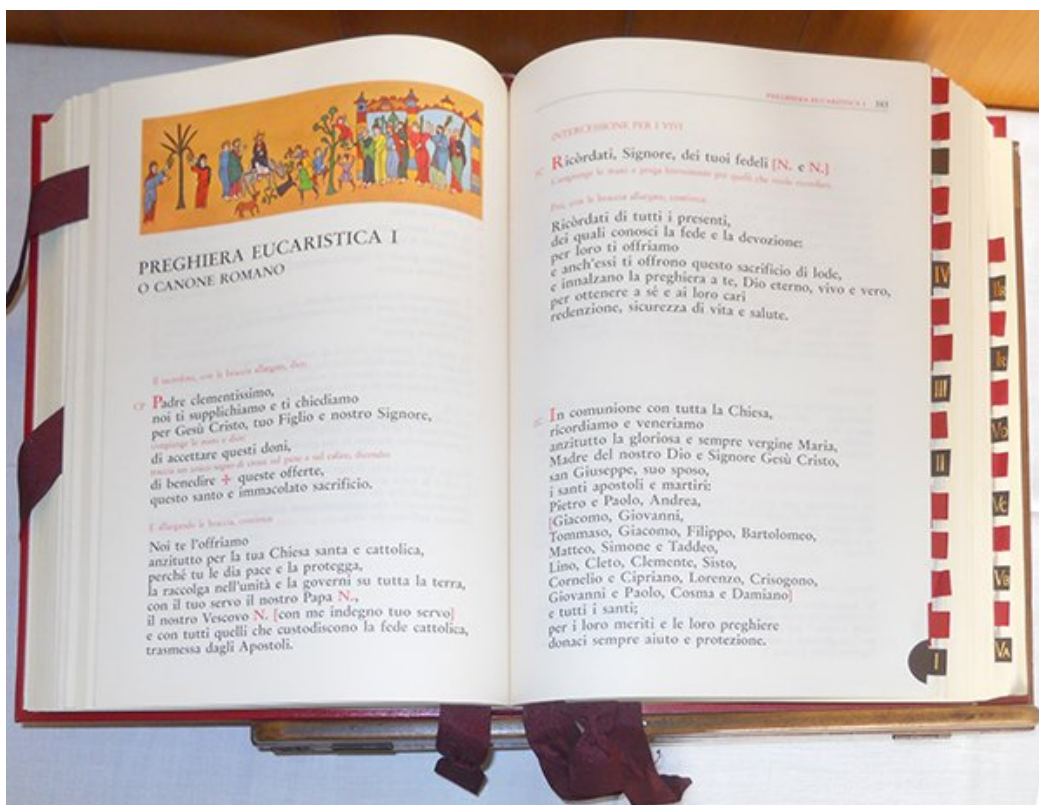 PREGHIERA EUCARISTICA I
O CANONE ROMANO
Il sacerdote, con le braccia allargate, dice:
CP Padre clementissimo,
noi ti supplichiamo e ti chiediamo
per Gesù Cristo, tuo Figlio e nostro Signore,
congiunge le mani e dice:
di accettare questi doni,
traccia un unico segno di croce sul pane e sul calice, dicendo:
di benedire ✠ queste offerte,
questo santo e immacolato sacrificio.
E allargando le braccia, continua:
Noi te l'offriamo
anzitutto per la tua Chiesa santa e cattolica,
perché tu le dia pace e la protegga,
la raccolga nell'unità e la governi su tutta la terra,
con il tuo servo il nostro Papa N.,
il nostro Vescovo N. [con me indegno tuo servo]
e con tutti quelli che custodiscono la fede cattolica,
trasmessa dagli Apostoli.
PREGHIERA EUCARISTICA I
INTERCESSIONE PER I VIVI
Ricòrdati, Signore, dei tuoi fedeli [N. e N.]
Congiunge le mani e prega brevemente per quelli che vuole ricordare.
Poi, con le braccia allargate, continua:
Ricòrdati di tutti i presenti,
dei quali conosci la fede e la devozione:
per loro ti offriamo
e anch'essi ti offrono questo sacrificio di lode,
e innalzano la preghiera a te, Dio eterno, vivo e vero,
per ottenere a sé e ai loro cari
redenzione, sicurezza di vita e salute.
In comunione con tutta la Chiesa,
ricordiamo e veneriamo
anzitutto la gloriosa e sempre vergine Maria,
Madre del nostro Dio e Signore Gesù Cristo,
san Giuseppe, suo sposo,
i santi apostoli e martiri:
Pietro e Paolo, Andrea,
[Giacomo, Giovanni,
Tommaso, Giacomo, Filippo, Bartolomeo,
Matteo, Simone e Taddeo,
Lino, Cleto, Clemente, Sisto,
Cornelio e Cipriano, Lorenzo, Crisogono,
Giovanni e Paolo, Cosma e Damiano]
e tutti i santi;
per i loro meriti e le loro preghiere
donaci sempre aiuto e protezione.
IV
III
II
I
VD
VC
VB
VA